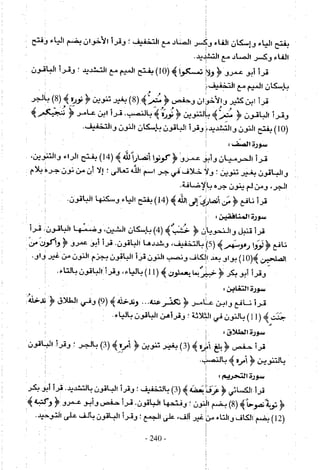 بفتح الياء وإسكان الفاء وكسر الصاد مع التخفيف ؛ وقرأ الأخوان بضم الياء وفتح
الفاء وكسر الصاد مع التشديد.
قرأ أبو عمرو ﴿ ولا تمسكوا ﴾ (10) بفتح الميم مع التشديد ؛ وقرأ الباقون
بإسكان الميم مع التخفيف.
قرأ ابن كثير والأخوان وحفص ﴿ متم ﴾ (8) بغير تنوين ﴿ نوره ﴾ (8) بالجر
وقرأ الباقون ﴿ متم ﴾ بالتنوين ﴿ نوره ﴾ بالنصب. قرأ ابن عامر ﴿ تنجيكم ﴾
(10) بفتح النون والتشديد، وقرأ الباقون بإسكان النون والتخفيف.
سورة الصف :
قرأ الحرميان وأبو عمرو ﴿ كونوا أنصارا لله ﴾ (14) بفتح الراء والتنوين،
والباقون بغير تنوين ؛ ولا خلاف في جر اسم الله تعالى ؛ إلا أن من نون جره بلام
الجر، ومن لم ينون جره بالإضافة.
قرأ نافع ﴿ من أنصاري إلى الله ﴾ (14) بفتح الياء وسكنها الباقون.
سورة المنافقين :
قرأ قنبل والنحويان ﴿ خشب ﴾ (4) بإسكان الشين، وضمها الباقون. قرأ
نافع ﴿ لووا رءوسهم ﴾ (5) بالتخفيف، وشددها الباقون. قرأ أبو عمرو ﴿ وأكون من
الصلحين ﴾ (10) بواو بعد الكاف ونصب النون قرأ الباقون بجزم النون من غير واو.
وقرأ أبو بكر ﴿ خبير بما يعملون ﴾ (11) بالياء، وقرأ الباقون بالتاء.
سورة التغابن :
قرأ نافع وابن عامر ﴿ نكفر عنه... وندخله ﴾ (9) وفي الطلاق ﴿ ندخله
جنت ﴾ (11) بالنون في الثلاثة ؛ وقرأهن الباقون بالياء.
سورة الطلاق :
قرأ حفص ﴿ بلغ أمره ﴾ (3) بغير تنوين ﴿ أمره ﴾ (3) بالجر ؛ وقرأ الباقون
بالتنوين ﴿ أمره ﴾ بالنصب.
سورة التحريم :
قرأ الكسائي ﴿ عرف بعضه ﴾ (3) بالتخفيف ؛ وقرأ الباقون بالتشديد. قرأ أبو بكر
﴿ توبة نصوحا ﴾ (8) بضم النون ؛ وفتحها الباقون. قرأ حفص وأبو عمرو ﴿ وكتبه ﴾
(12) بضم الكاف والتاء من غير ألف، على الجمع ؛ وقرأ الباقون بألف على التوحيد.
- 240 -